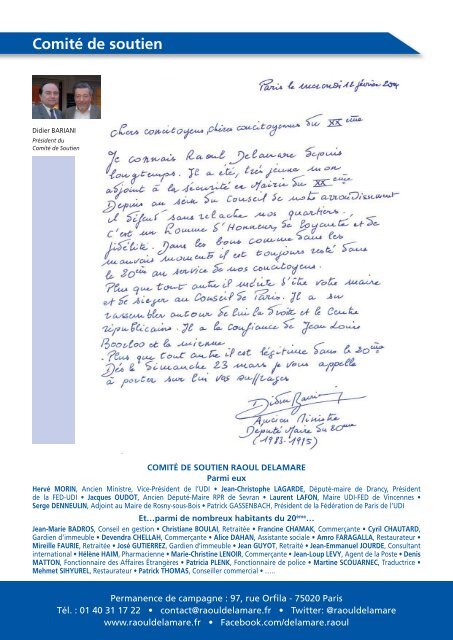 Comité de soutien
Paris le mercredi 12 février 2014
Didier BARIANI
Président du
Comité de Soutien
Chers concitoyens, chères concitoyennes du XXème
Je connais Raoul Delamare depuis
longtemps. Il a été, très jeune mon
adjoint à la sécurité en Mairie du XXème
Depuis au sein du Conseil de notre arrondissement
il défend sans relache nos quartiers.
C'est un homme d'Honneur, de loyauté et de
fidélité. Dans les bons comme dans les
mauvais moments il est toujours resté dans
le 20ème au service de nos concitoyens.
Plus que tout autre il mérite d'être votre maire
et de siéger au Conseil de Paris. Il a su
rassembler autour de lui la droite et le Centre
républicains. Il a la confiance de Jean Louis
Borloo et la mienne
. Plus que tout autre il est légitime dans le 20ème
Dès le dimanche 23 mars je vous appelle
à porter sur lui vos suffrages
Didier Bariani
Ancien Ministre
Député Maire du 20ème
(1983-1995)
COMITÉ DE SOUTIEN RAOUL DELAMARE
Parmi eux
Hervé MORIN, Ancien Ministre, Vice-Président de l'UDI • Jean-Christophe LAGARDE, Député-maire de Drancy, Président
de la FED-UDI • Jacques OUDOT, Ancien Député-Maire RPR de Sevran • Laurent LAFON, Maire UDI-FED de Vincennes •
Serge DENNEULIN, Adjoint au Maire de Rosny-sous-Bois • Patrick GASSENBACH, Président de la Fédération de Paris de l'UDI
Et...parmi de nombreux habitants du 20ème...
Jean-Marie BADROS, Conseil en gestion • Christiane BOULAI, Retraitée • Francine CHAMAK, Commerçante • Cyril CHAUTARD,
Gardien d'immeuble • Devendra CHELLAH, Commerçante • Alice DAHAN, Assistante sociale • Amro FARAGALLA, Restaurateur •
Mireille FAURIE, Retraitée • José GUTIERREZ, Gardien d'immeuble • Jean GUYOT, Retraité • Jean-Emmanuel JOURDE, Consultant
international • Hélène HAIM, Pharmacienne • Marie-Christine LENOIR, Commerçante • Jean-Loup LEVY, Agent de la Poste • Denis
MATTON, Fonctionnaire des Affaires Étrangères • Patricia PLENK, Fonctionnaire de police • Martine SCOUARNEC, Traductrice •
Mehmet SIHYUREL, Restaurateur • Patrick THOMAS, Conseiller commercial • .....
Permanence de campagne : 97, rue Orfila - 75020 Paris
Tél. : 01 40 31 17 22 • contact@raouldelamare.fr • Twitter: @raouldelamare
www.raouldelamare.fr • Facebook.com/delamare.raoul